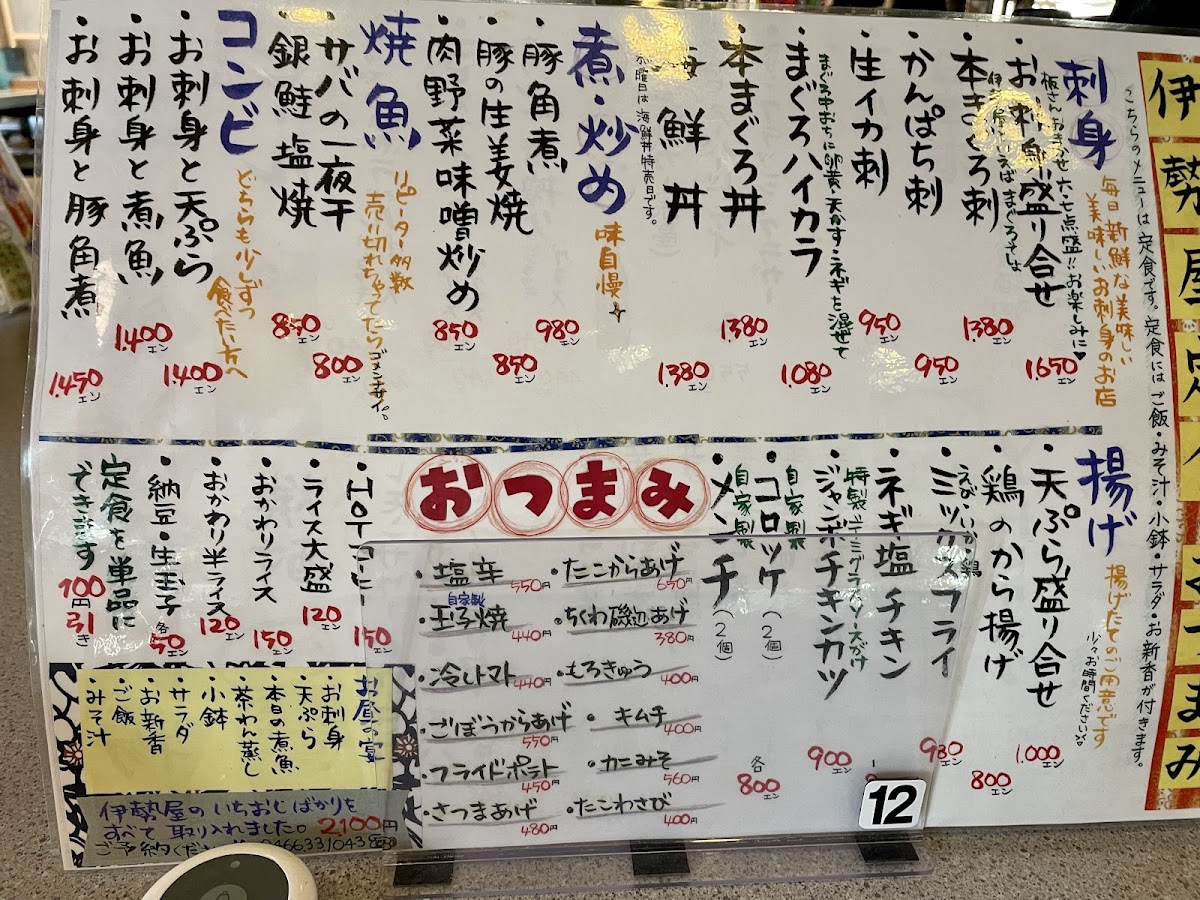 こちらのメニューは定食です。定食にはご飯・みそ汁・小鉢・サラダ・お新香が付きます。
刺身
毎日新鮮な美味しい
美味しいお刺身のお店
・お刺身盛り合せ
板さんおまかせ六・七点盛!!お楽しみに♥
1.650エン
・本まぐろ刺
まぐろでしょ
1.380エン
・かんぱち刺
950エン
・生イカ刺
950エン
・まぐろハイカラ
まぐろ中おちに卵黄・天かす・ネギを混ぜて
1.080エン
・本まぐろ丼
1.380エン
海鮮丼
曜日は海鮮丼特売日です。
1.380エン
煮・炒め
味自慢
・豚角煮
980エン
・豚の生姜焼
850エン
・肉野菜味噌炒め
850エン
焼魚
リピーター多数
売り切れちゃってたらゴメンナサイ。
・サバの一夜干
800エン
・銀鮭塩焼
850エン
コンビ
どちらも少しずつ
食べたい方へ
・お刺身と天ぷら
1.400エン
・お刺身と煮魚
1.400エン
・お刺身と豚角煮
1.450エン
揚げ
揚げたてのご用意です
少々お時間ください
・天ぷら盛り合せ
1.000エン
・鶏のから揚げ
800エン
・ミックスフライ
えび・いか・鶏
930エン
・ネギ塩チキン
・ジャンボチキンカツ
900エン
・コロッケ(2個)
自家製
・メンチ(2個)
自家製
各800エン
おつまみ
・塩辛 550円
・たこからあげ 650円
・自家製玉子焼 440円
・ちくわ磯辺あげ 380円
・冷しトマト 440円
・もろきゅう 400円
・ごぼうからあげ 550円
・キムチ 400円
・フライドポテト 450円
・カニみそ 560円
・さつまあげ 480円
・たこわさび 400円
12
・HOTコーヒー 150エン
・ライス大盛 120エン
・おかわりライス 150エン
・おかわり半ライス 120エン
・納豆・生玉子 各50エン
定食を単品に
できます 100円引き
お昼の宴
お刺身
天ぷら
本日の煮魚
茶わん蒸し
小鉢
サラダ
お新香
ご飯
みそ汁
伊勢屋のいちおしばかりを
すべて取り入れました。2,100円
ご予約くだ